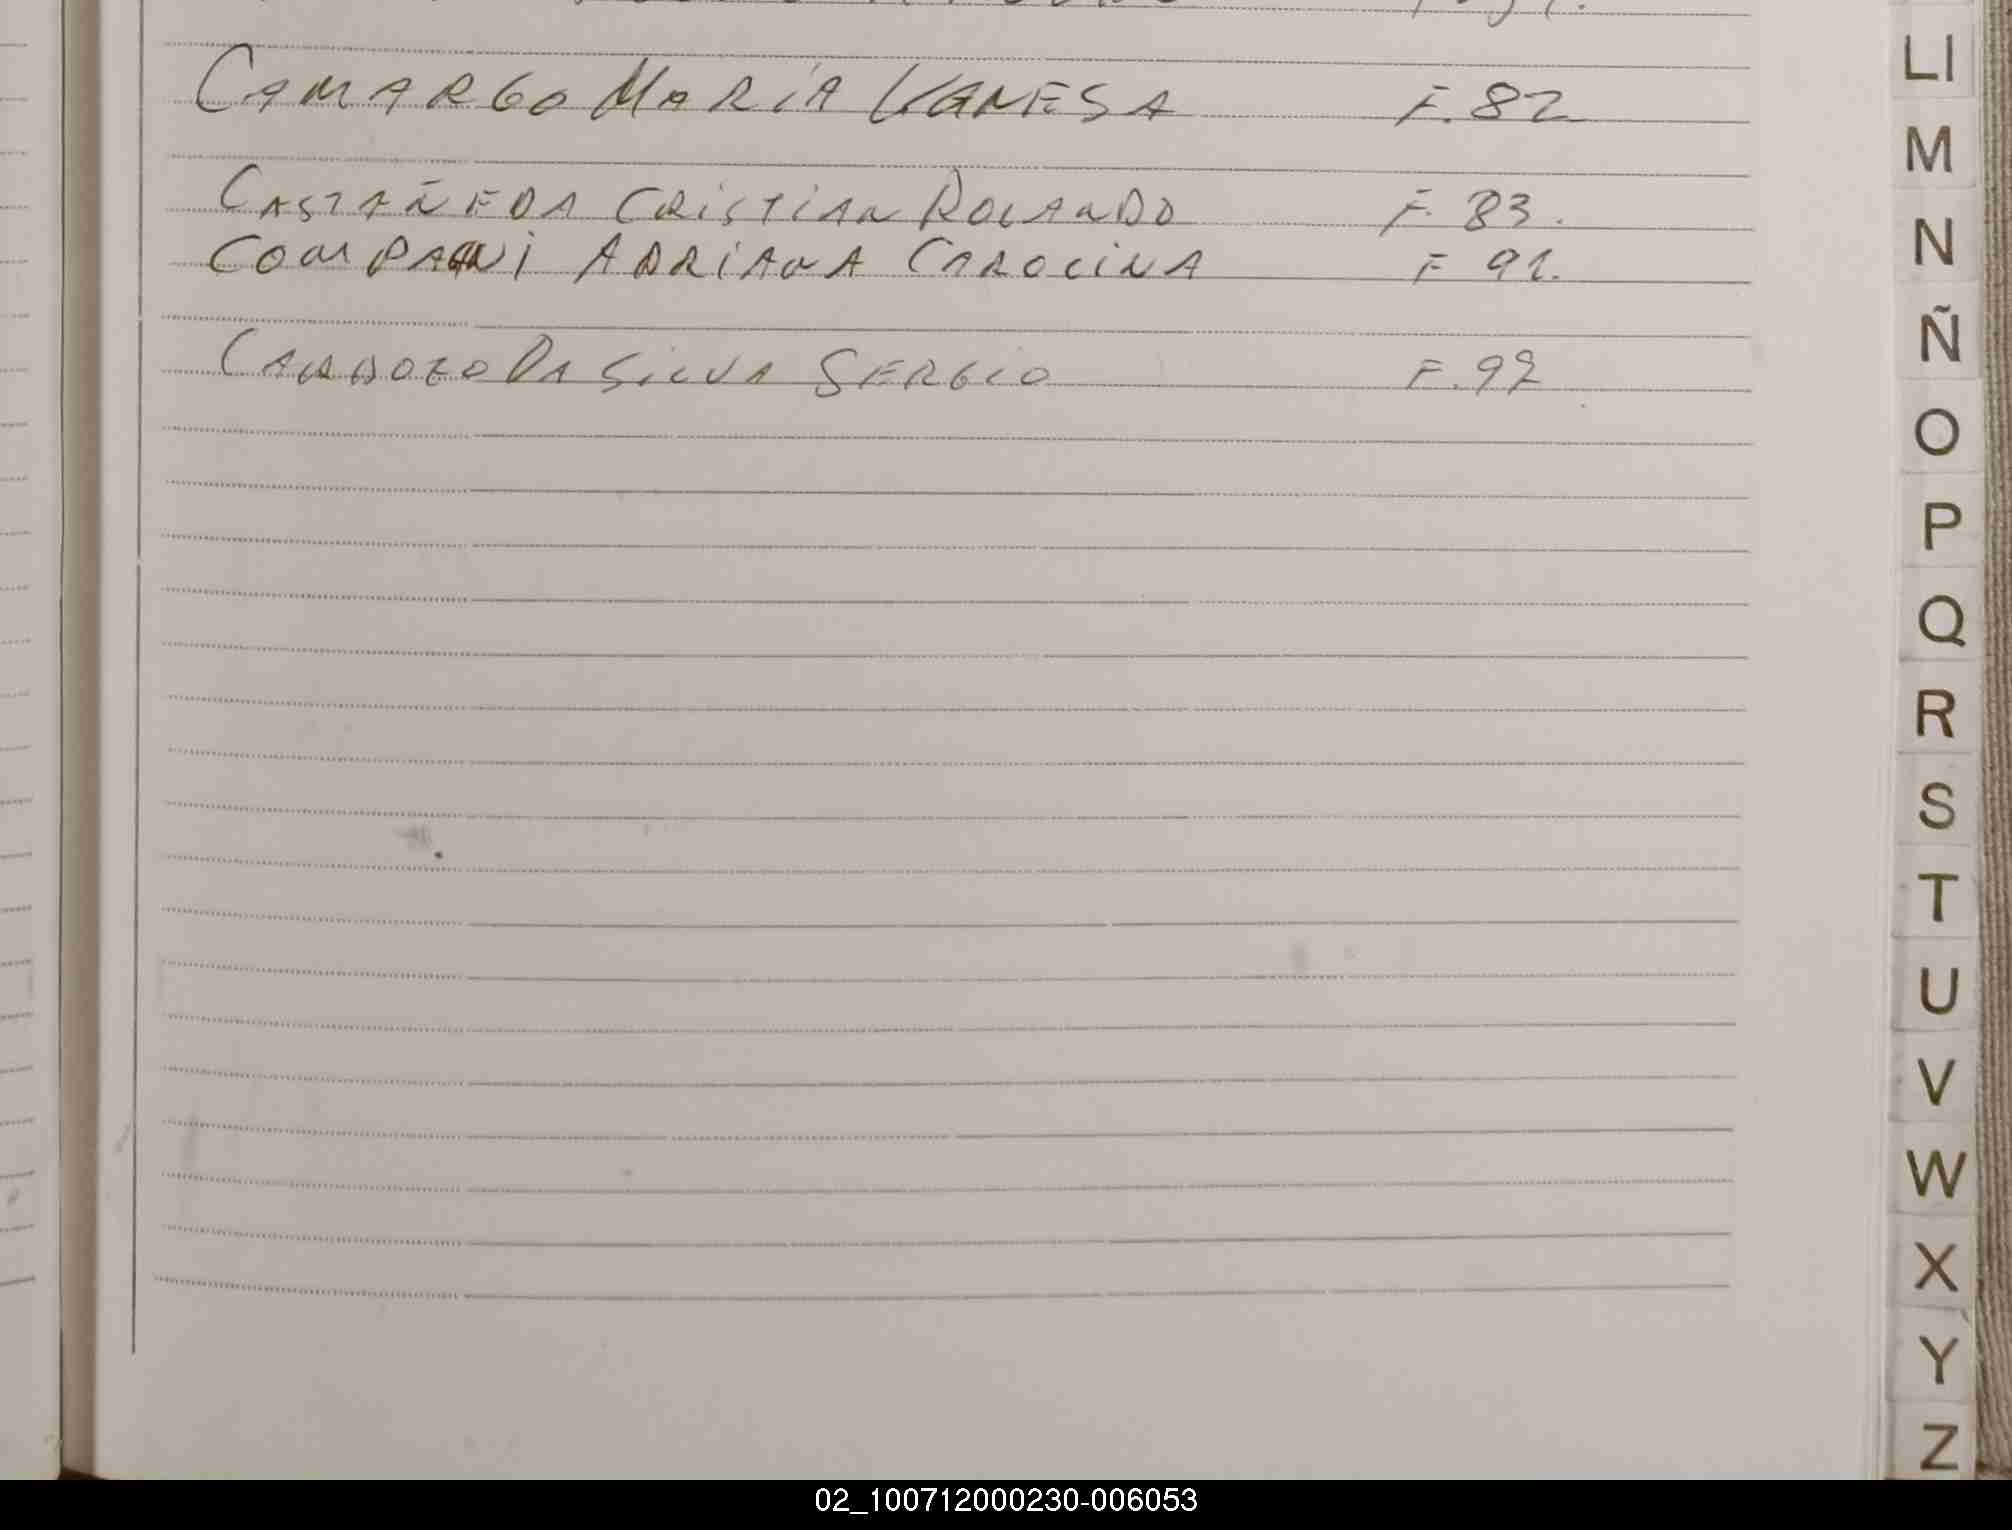 CAMARGO MARÍA VANESA F. 82
CASTAÑEDA CRISTIAN ROLANDO F. 83.
COMPANI ADRIANA CAROLINA F 91.
CARDOZO DA SILVA SERGIO F. 92
LI
M
N
Ñ
O
P
Q
R
S
T
U
V
W
X
Y
Z
02_100712000230-006053